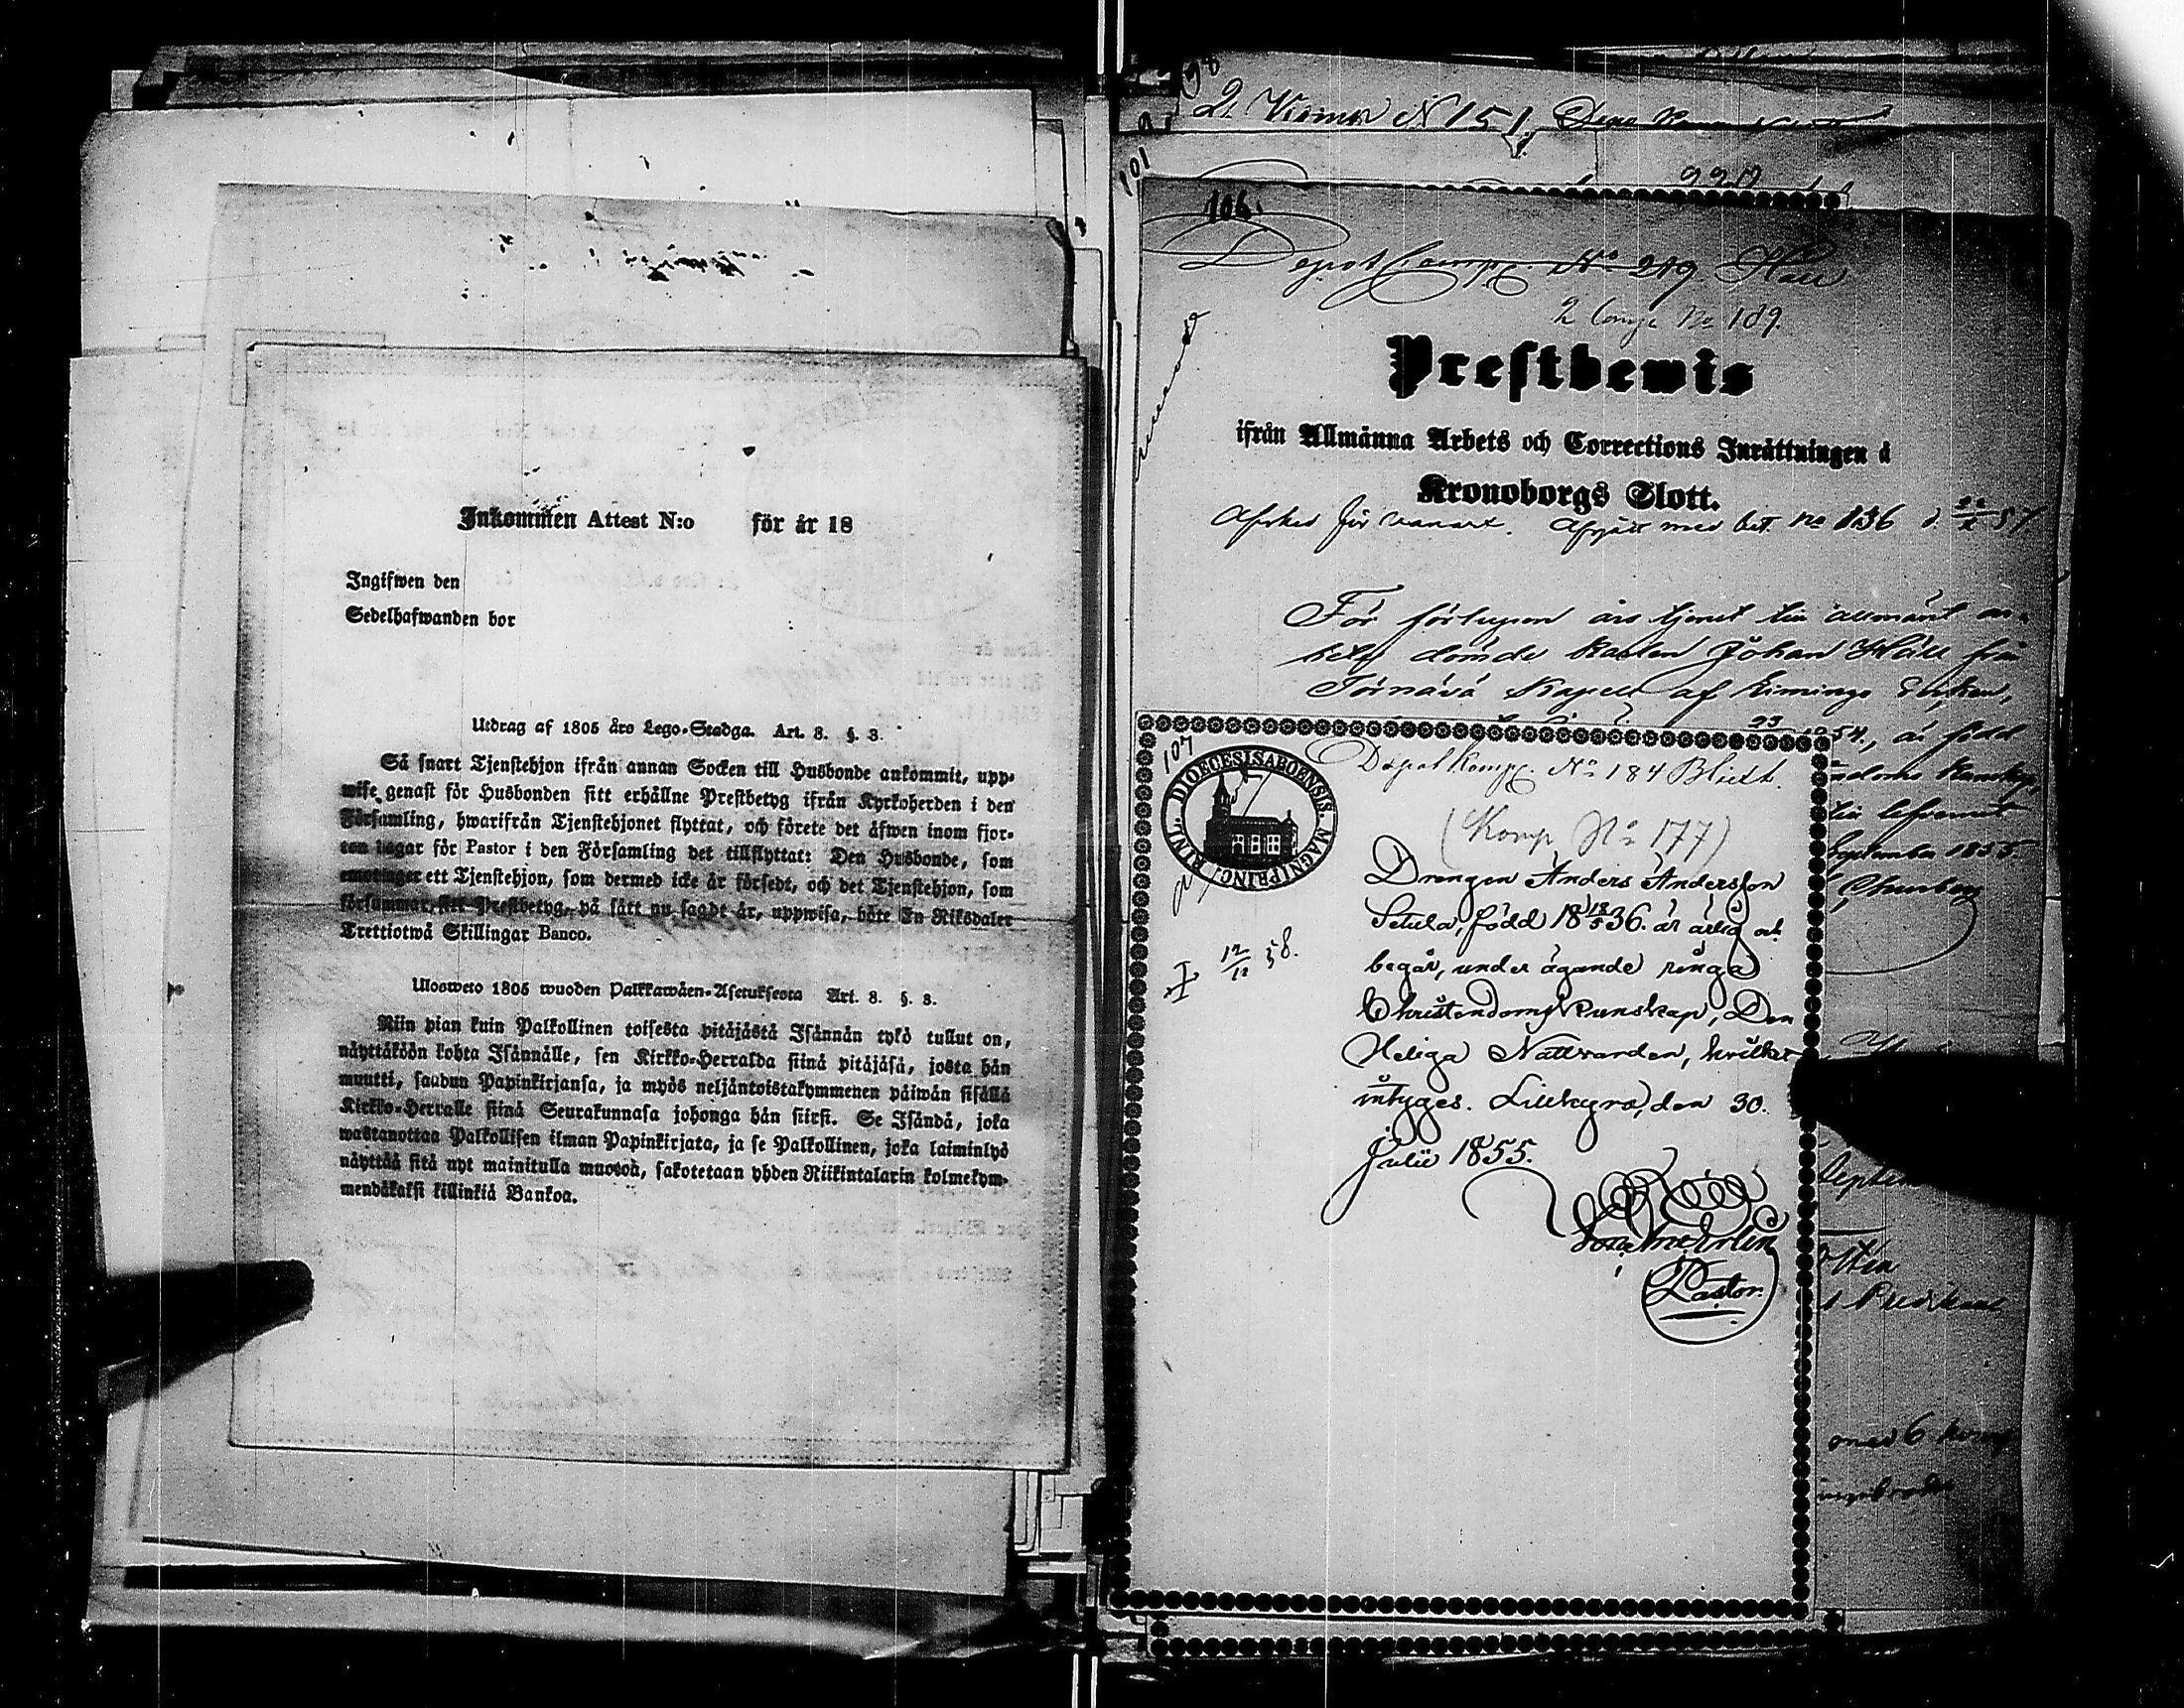 Inkommen Attest N:o för år 18
Ingifwen den
Sedelhafwanden bor
Utdrag af 1805 års Lego-Stadga. Art. 8. §. 3.
Så snart Tjenstehjon ifrån annan Socken till Husbonde ankommit, upp-
wise genast för Husbonden sitt erhållne Prestbetyg ifrån Kyrkoherden i den
Församling, hwarifrån Tjenstehjonet flyttat, och förete det äfwen inom fjor-
ton dagar för Pastor i den Församling det tillflyttat: Den Husbonde, som
emottager ett Tjenstehjon, som dermed icke är försedt, och det Tjenstehjon, som
försummar, sitt Prestbetyg, på sätt nu sagdt är, uppwisa, böte En Riksdaler
Trettiotwå Skillingar Banco.
Ulosweto 1805 wuoden Palkkawäen-Asetuksesta Art. 8. §. 3.
Niin pian kuin Palkollinen toisesta pitäjästä Isännän tykö tullut on,
näyttäköön kohta Isännälle, sen Kirkko-Herralda siinä pitäjäsä, josta hän
muutti, saadun Papinkirjansa, ja myös neljäntoistakymmenen päiwän sisällä
Kirkko-Herralle siinä Seurakunnasa johonga hän siirsi. Se Isändä, joka
wastanottaa Palkollisen ilman Papinkirjata, ja se Palkollinen, joka laiminlyö
näyttää sitä nyt mainitulla muotoa, sakotetaan yhden Riikintalarin kolmekym-
mendäkaksi killinkiä Bankoa.
2. Komp N 151.
101
106.
Depot Compg. No 279. Häll
2 Comp No 189.
Prestbewis
ifrån Allmänna Arbets och Corrections Inrättningen å
Kronoborgs Slott.
Afsked för vanart. Afgått med bet. No 136 d. 22/2 57
För förlupen års tjenst till allmänt ar-
bete dömde Karlen Johan Häll från
Törnävä Kapell af Ilmingo Socken,
54., är född
September 1855.
107
RING. DIOECESIS ABOENSIS. MAGNI PRINC.
Depot Kompg. No 184 Blixt.
(Komp No 177)
12/12 58.
Drengen Anders Andersson
Setula, född 18 18/5 36. är ärlig och
begår, under ägande ringa
Christendoms kunskap, Den
Heliga Nattvarden, hvilket
intyges. Lillkyro, den 30.
Julii 1855.
Pastor.
Septem